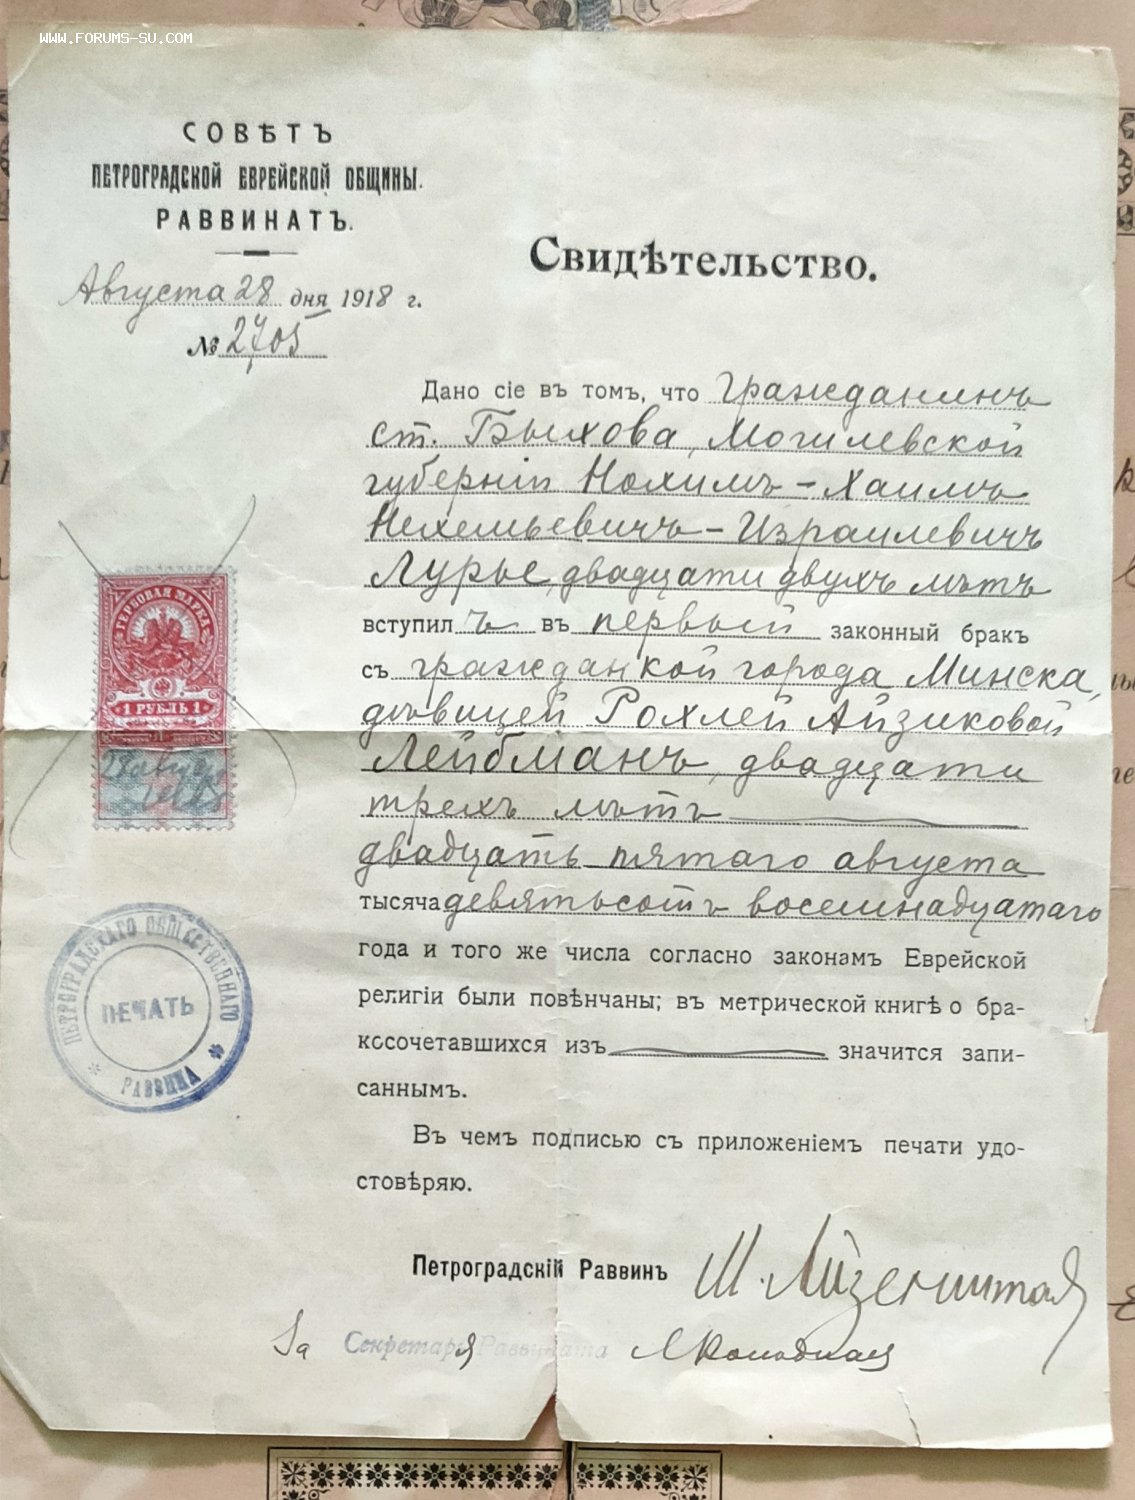 WWW.FORUMS-SU.COM
СОВѢТЪ
ПЕТРОГРАДСКОЙ ЕВРЕЙСКОЙ ОБЩИНЫ.
РАВВИНАТЪ.
Августа 28 дня 1918 г.
№ 2705
Свидѣтельство.
Дано сіе въ томъ, что гражданинъ
ст. Быхова, Могилевской
губерніи Нохимъ-Хаимъ
Нехемьевичъ-Израилевичъ
Лурье, двадцати двухъ лѣтъ
вступилъ въ первый законный бракъ
съ гражданкой города Минска,
дѣвицей Рохлей Айзиковой
Лейбманъ, двадцати
трехъ лѣтъ
двадцать пятаго августа
тысяча девятьсотъ восемнадцатаго
года и того же числа согласно законамъ Еврейской
религіи были повѣнчаны; въ метрической книгѣ о бра-
кссочетавшихся изъ значится запи-
саннымъ.
Въ чемъ подписью съ приложеніемъ печати удо-
стовѣряю.
Петроградскій Раввинъ Ш. Айзенштадт
За Секретаря Раввината
ГЕРБОВАЯ МАРКА
1 РУБЛЬ 1
28 авгус
1918
ПЕТРОГРАДСКАГО ОБЩЕСТВЕННАГО
ПЕЧАТЬ
РАВВИНА